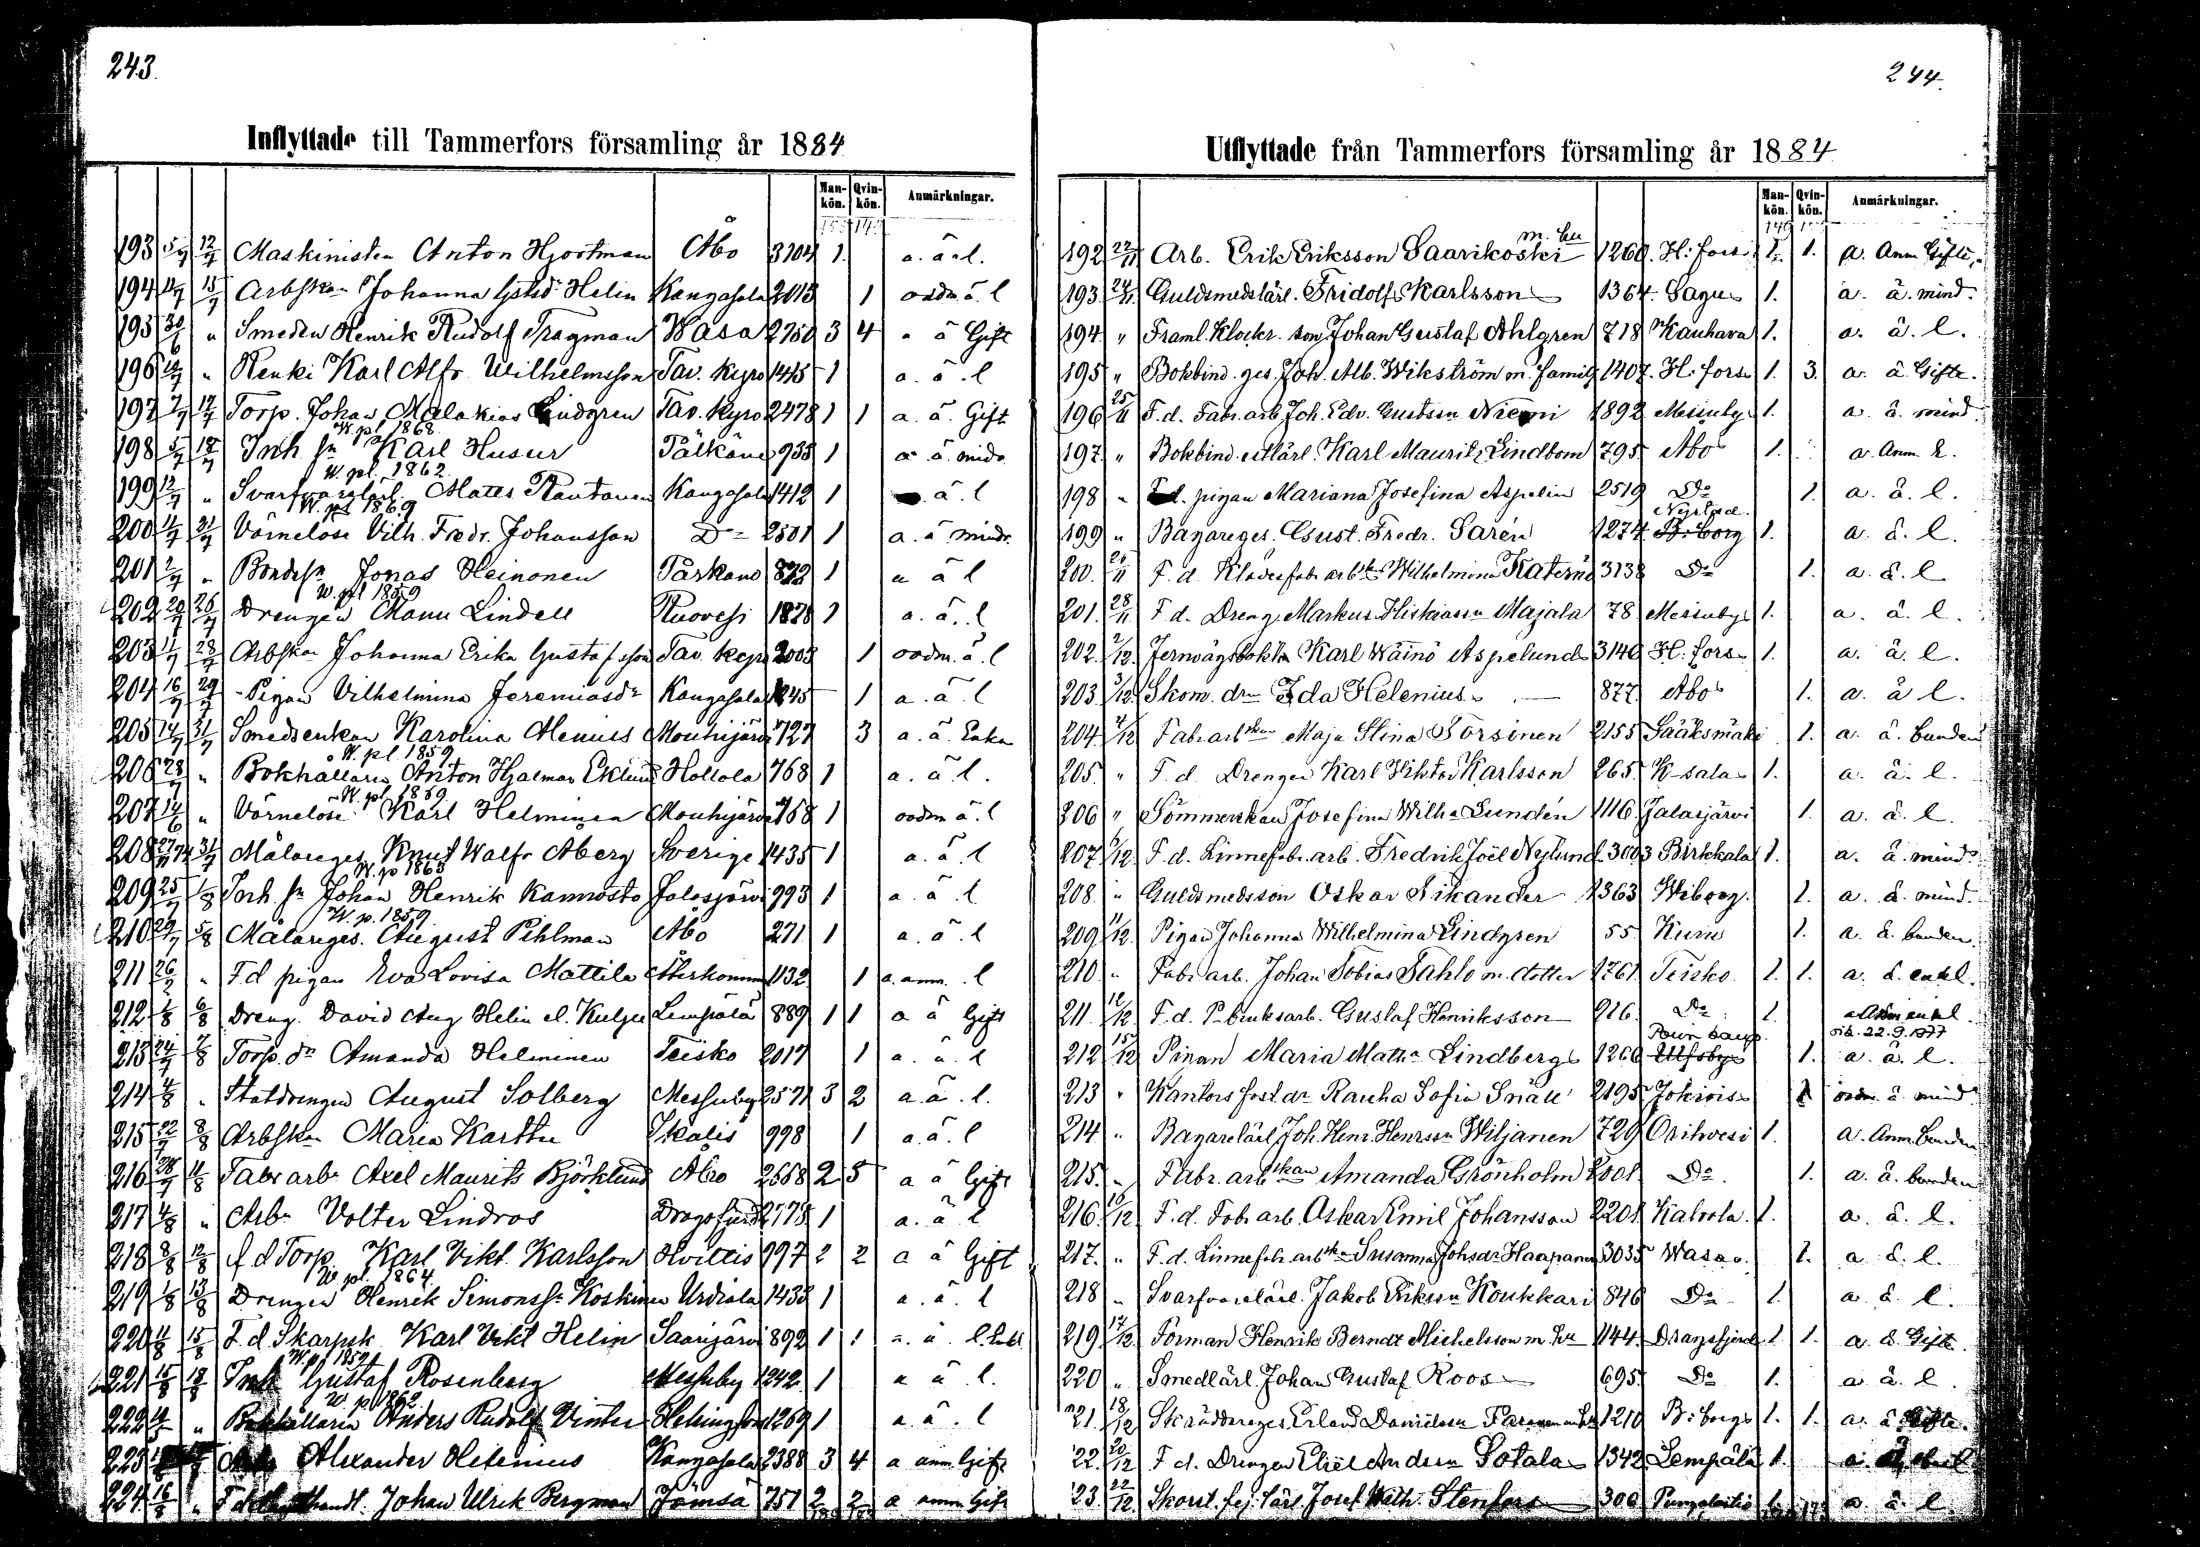 243.
Inflyttade till Tammerfors församling år 1884
Man-kön. Qvin-kön. Anmärkningar.
193 5/7 12/7 Maskinisten Anton Hjortman Åbo 3104 1. a. ä. l.
194 15/7 Arbskan Johanna Gstdr Helin Kangasala 2013 1 oadm. ä. l
195 " Smeden Henrik Rudolf Tragman Wasa 2750 3 4 a ä Gift
196 " Renki Karl Alfr. Wilhelmsson Tav. Kyro 1415 1 a. ä. l
197 7/7 17/7 Torp. Johan Malakias Lindgren Tav. Kyro 2478 1 1 a. ä. Gift
W. pl. 1862
198 5/7 18/7 Inh. sn Karl Husur Pälkäne 938 1 a. ä. mido
W. pl. 1862
199 12/7 " Svarfvarelärl. Matts Rautanen Kangasala 1412 1 ä. l
W. pl 1869
200 21/7 Värnelöse Vilh. Fredr. Johansson Do 2501 1 a. ä mindr.
201 2/7 " Bondesn Jonas Heinonen Parkano 822 1 a ä l
W. pl 1859
202 20/7 26/7 Drengen Manu Lindell Ruovesi 1828 1 a. ä. l
203 28/7 Arbskan Johanna Erika Gustafsson Tav. Kyro 2003 1 oadm. ä. l
204 16/7 29/7 Pigan Vilhelmina Jeremiasdr Kangasala 1245 1 a. ä. l
205 14/7 31/7 Smedsenkan Karolina Alenius Mouhijärvi 727 3 a. ä. Enka
W. pl. 1859
206 28/7 " Bokhållaren Anton Hjalmar Eklund Hollola 768 1 a. ä. l.
W. pl. 1859
207 14/6 " Värnelöse Karl Helminen Mouhijärvi 768 1 oadm ä. l
208 31/7 Målareges. Knut Walfr Åberg Sverige 1435 1 a. ä. l
W. p 1863
209 25/7 1/8 Inh. sn Johan Henrik Kannosto Jalasjärvi 993 1 a. ä. l
W. p. 1859
210 29/7 5/8 Målareges. August Pihlman Åbo 271 1 a. ä. l
211 26/7 " F d pigan Eva Lovisa Mattila 1132 1 a. anm. l
212 1/8 6/8 Dreng. David Aug Helin el. Kulju Lempälä 889 1 1 a ä Gift
213 24/7 7/8 Torp. dr Amanda Helminen Teisko 2017 1 a. ä. l
214 4/8 " Statdrengen August Solberg Messuby 2571 3 2 a. ä. l.
215 22/7 8/8 Arbskan Maria Karttu Ikalis 998 1 a. ä. l
216 28/7 11/8 Fabr arb. Axel Maurits Björklund Åbo 2668 2 5 a ä Gift
217 4/8 " Arbn Volter Lindros Dragsfjerd 2778 1 a. ä. l
218 8/8 12/8 f d Torp. Karl Vikt. Karlsson Hvittis 997 2 2 a ä Gift
W. pl. 1864
219 1/8 13/8 Drengen Henrik Simonssn Koskinen Urdiala 1433 1 a. ä. l
220 11/8 15/8 F. d Skarpsk Karl Vikt Helin Saarijärvi 892 1 1 a. ä. l.
W. pl 1859
221 15/8 18/8 Inh Gustaf Rosenberg Messuby 1242 1 a ä. l.
W. p. 1862
222 " Bokhållaren Anders Rudolf Vinter Helsingfors 1269 1 a. ä. l
223 Alexander Helenius Kangasala 2388 3 4 a anm. Gift
224 16/8 " Johan Ulrik Bergman Jämsä 751 2 2 a anm Gift
244.
Utflyttade från Tammerfors församling år 1884
Man-kön. Qvin-kön. Anmärkningar.
192 22/11 Arb. Erik Eriksson Saarikoski m. hu 1260. H:fors 1. 1. a. Anm Gifte.
193. 24/11 Guldsmedslärl. Fridolf Karlsson 1364. Sagu 1. a. ä. mind.
194 " Framl. Klockr. son Johan Gustaf Ahlgren 718 Kauhava 1. a. ä. l.
195 " Bokbind. ges. Joh. Alb. Wikström m. familj 1407. H:fors 1. 3. a. ä. Gifte.
196 25/11 F. d. Fabr. arb. Joh. Edv. Gustssn Niemi 1892 Messuby 1. a. ä. mind
197. " Bokbinderilärl. Karl Maurits Lindbom 795 Åbo 1. a. Anm. l.
198 " F. d. pigan Mariana Josefina Aspelin 2519 Do 1. a. ä. l.
199 " Bagareges. Gust. Fredr. Sarén 1274 B:borg Nystad. 1. a. ä. l.
200. 26/11 F. d. Klädesfabr. arbskan Wilhelmina Katerna 3138 Do 1. a. ä. l
201. 28/11 F d. Dreng Markus Hiskiassn Majala 78 Messuby 1. a. ä. l.
202. 2/12. Jernvägsbokh. Karl Wäinö Aspelund 3140 H:fors 1. a. ä. l.
203. 3/12. Skom. drn Ida Helenius 877. Åbo 1. a. ä l.
204. 4/12 Fabr arbskan Maja Stina Forsinen 2155 Sääksmäki 1. a. ä. bunden
205. " F. d. Drengen Karl Viktor Karlsson 265. K-sala 1. a. ä. l.
206 " Sömmerskan Josefina Wilha Lundén 1116. Jalasjärvi 1. a. ä. l.
207. 6/12. F. d. Linnefabr. arb. Fredrik Joël Nylund 3003 Birkkala 1. a. ä. mind.
208. " Guldsmedsson Oskar Sikander 1363 Wiborg. 1. a. ä. mind.
209. 11/12. Pigan Johanna Wilhelmina Lindgren 55. Kuru 1. a. ä. bunden.
210. " Fabr arb. Johan Tobias Tahlo m. dotter 1761. Teisko 1. 1. a. ä. enkl.
211. 12/12. F. d. P-bruksarb. Gustaf Henriksson 916. Do 1. a Anm enkl.
212 15/12 Pigan Maria Matha Lindberg 1260 Ulfsby 1. a. ä. l.
22.9.1977
213 " Kantors fost. dr Rauha Sofia Snäll 2195 Jokiois 1 ä mind.
214 " Bagarelärl. Joh. Henr. Henrssn Wiljanen 729 Orihvesi 1. a. Anm. bunden
215. " Fabr. arbskan Amanda Grönholm 2001. Do. 1. a. ä. bunden
216. 16/12 F. d. Fabr arb. Oskar Emil Johansson 2201. Kalvola. 1. a. ä. l.
217. " F. d. Linnefabr. arbskan Susanna Johsdr Haapanen 3035 Wasa. 1. a. ä. l.
218 " Svarfvarelärl. Jakob Erikssn Koukkari 846 Do 1. a. ä. l.
219. 17/12. Förman Henrik Berndt Michelsson m. hu 1144. Dragsfjerd 1. 1. a. ä. Gifte.
220 " Smedlärl. Johan Gustaf Roos 695. Do 1. a. ä. l.
221. 18/12 Skräddareges. Erland Danielssn 1210 B:borg 1. 1. a. ä Gifte.
222. 20/12 F. d. Drengen Eliel Anderssn Sotala 1342. Lempälä 1. a.
223. 22/12. Skorst. fej. lärl. Josef Wilh. Stenfors 300 Pungalaitio 1. a. ä. l.